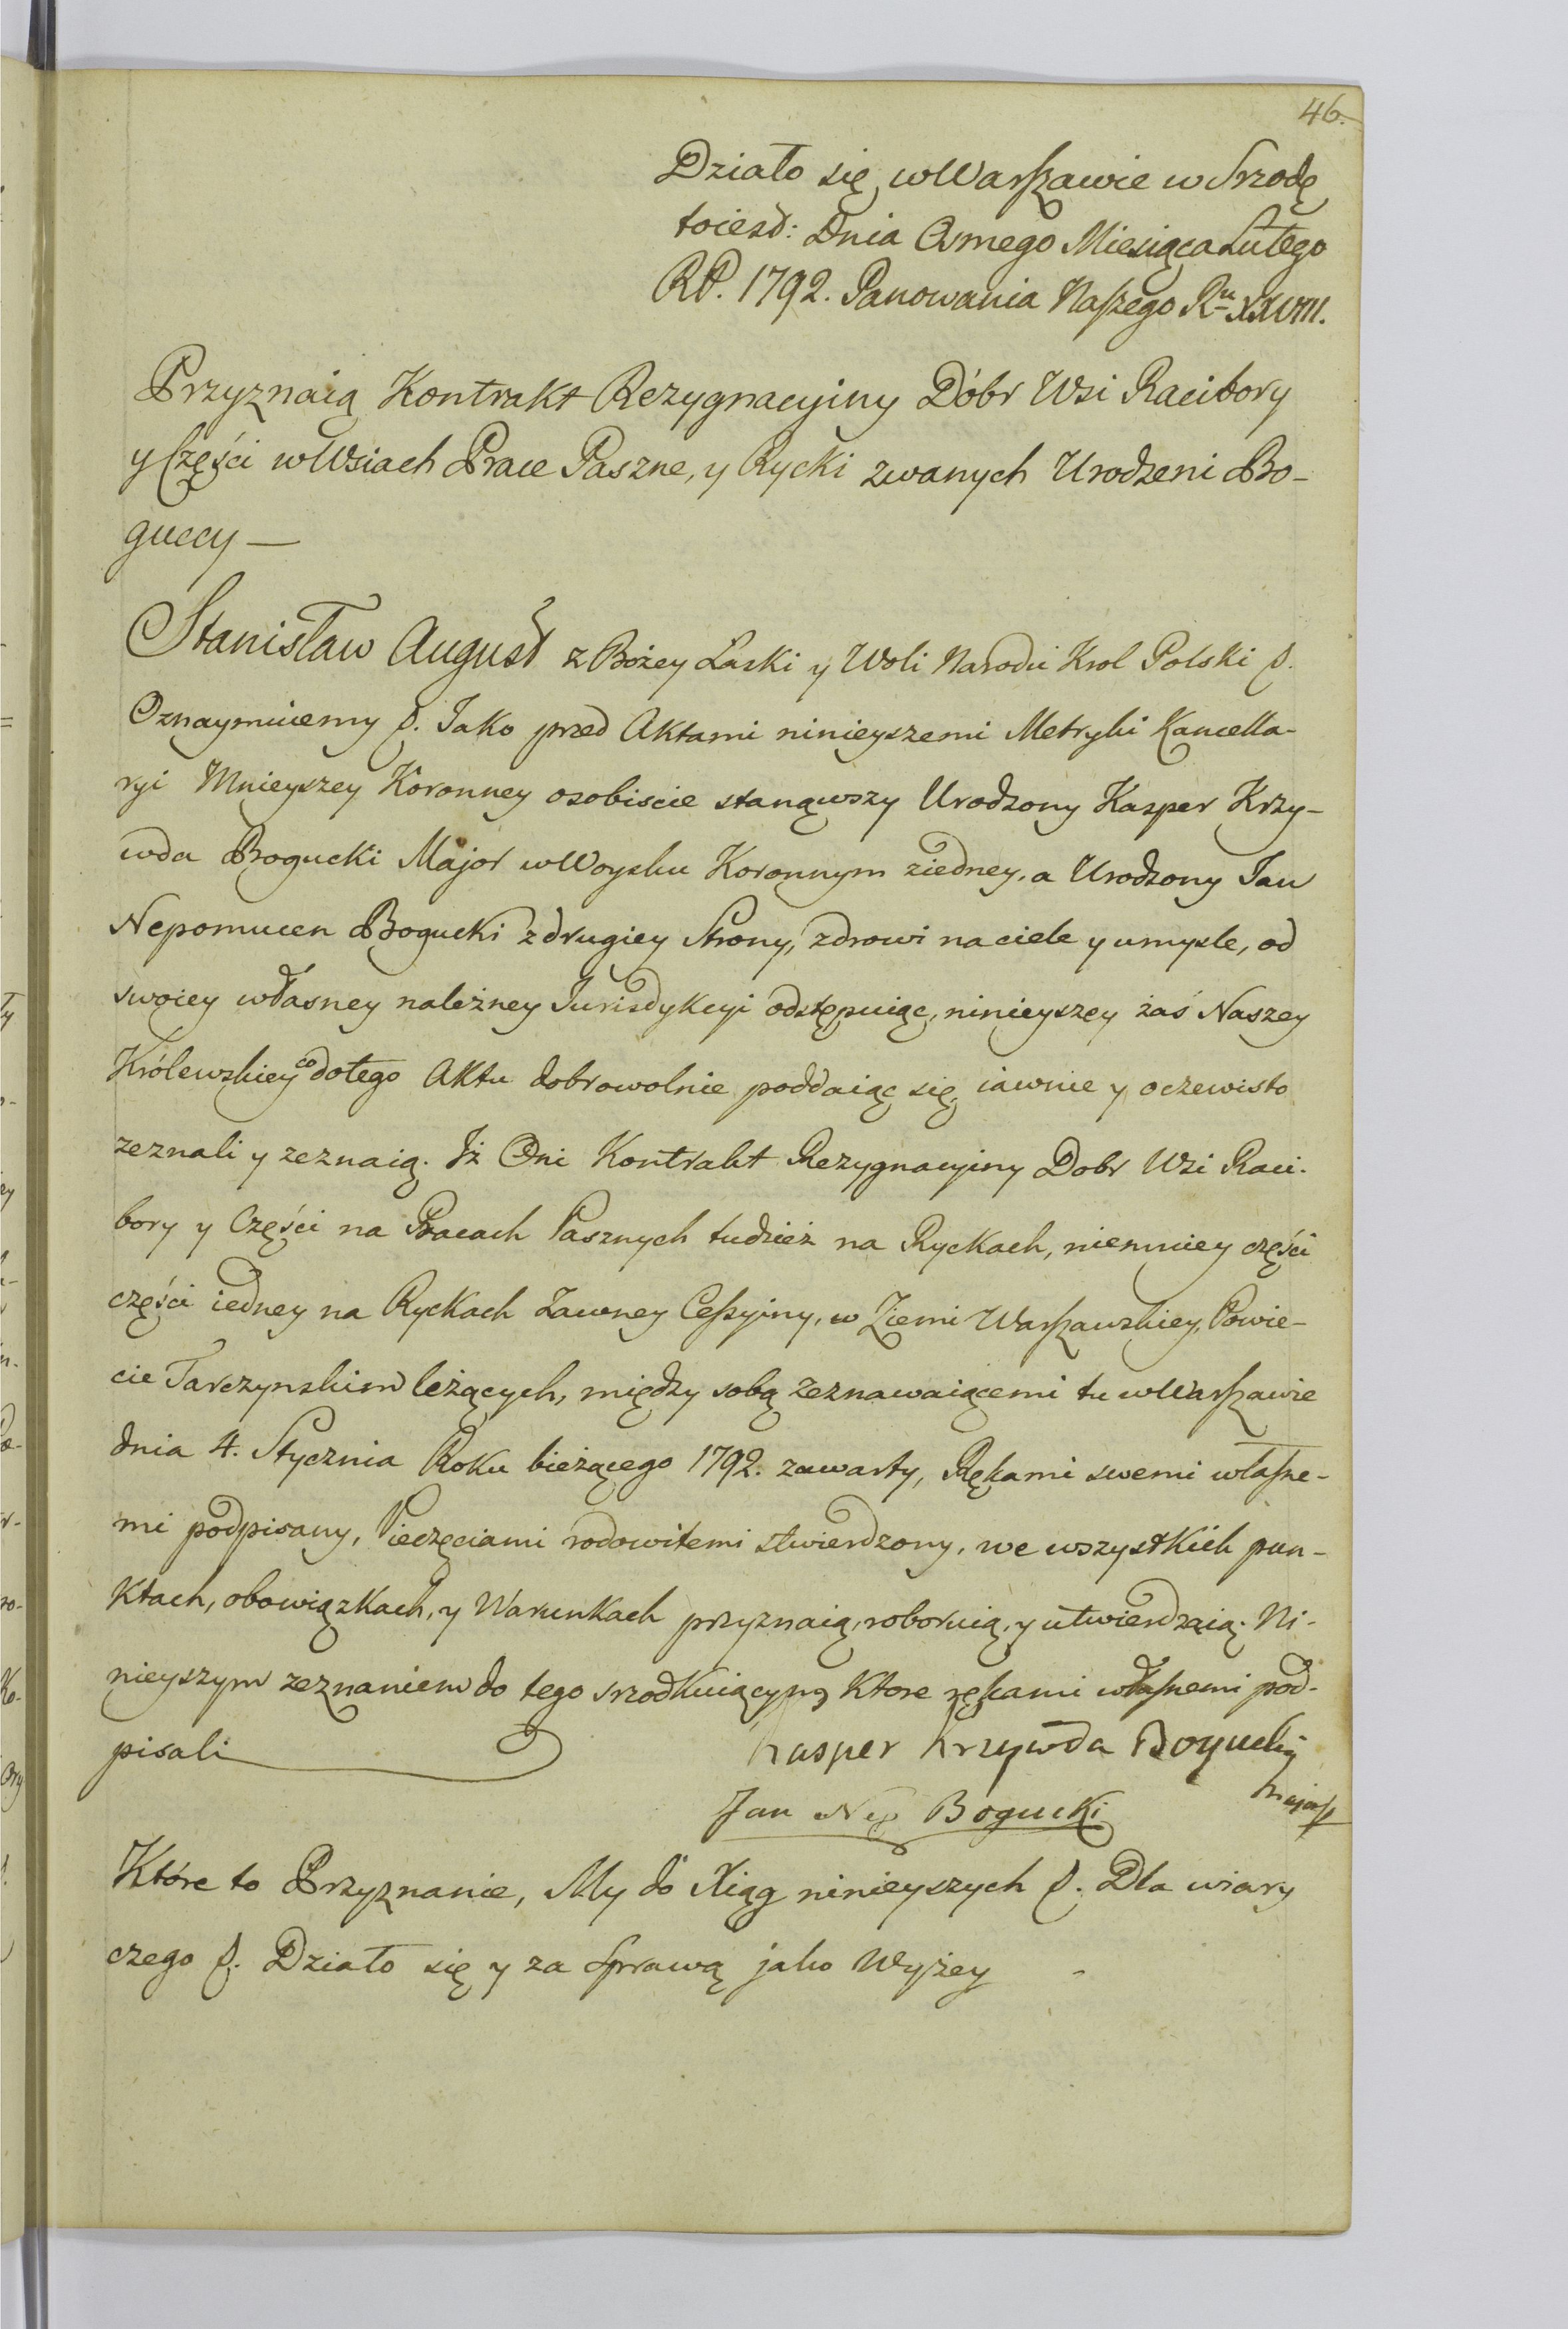 46.
Działo się w Warszawie w Srzodę
toiest: Dnia Osmego Miesiąca Lutego
RP. 1792. Panowania Naszego Ru XXVIII.
Przyznaią Kontrakt Rezygnacyiny Dóbr Wsi Racibory
y Części w Wsiach Prace Paszne, y Rycki zwanych Urodzeni Bo-
guccy —
Stanisław August z Bożey Łaski y Woli Narodu Krol Polski &.
Oznaymuiemy &. Jako przed Aktami ninieyszemi Metryki Kancella-
ryi Mnieyszey Koronney osobiscie stanąwszy Urodzony Kasper Krzy-
wda Bogucki Major w Woysku Koronnym ziedney, a Urodzony Jan
Nepomucen Bogucki z drugiey Strony, zdrowi na ciele y umysle, od
swoiey własney należney Jurisdykcyi odstępuiąc, ninieyszey żaś Naszey
Królewskiey co do tego Aktu dobrowolnie poddaiąc się, iawnie y oczewisto
zeznali y zeznaią. Jż Oni Kontrakt Rezygnacyiny Dobr Wsi Raci-
bory y Części na Pracach Pasznych tudzież na Ryckach, niemniey części
części iedney na Ryckach Zawney Cessyiny, w Ziemi Warszawskiey, Powie-
cie Tarczynskim leżących, między sobą zeznawaiącemi tu w Warszawie
dnia 4. Stycznia Roku bieżącego 1792. zawarty, Rękami swemi własne-
mi podpisany, Pieczęciami rodowitemi stwierdzony, we wszystkich pun-
ktach, obowiązkach, y Warunkach przyznaią, roboruią, y utwierdzaią. Ni-
nieyszym zeznaniem do tego srzodkuiącym, Ktore rękami własnemi pod-
pisali
Kasper Krzywda Bogucki
Major
Jan Nep Bogucki
Które to Przyznanie, My do Xiąg ninieyszych &. Dla wiary
czego &. Działo się y za Sprawą jako Wyżey -